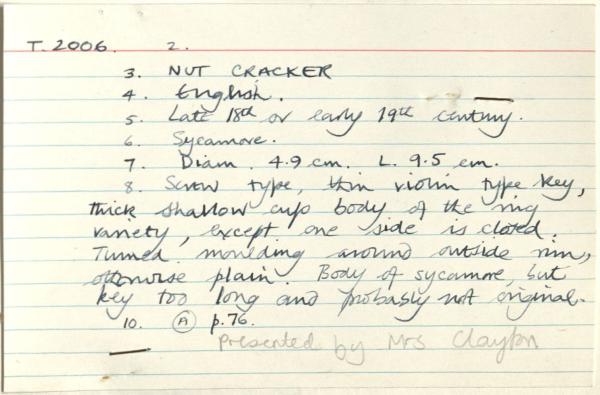 T. 2006. 2.
3. NUT CRACKER
4. English.
5. Late 18th or early 19th century.
6. Sycamore.
7. Diam. 4.9 cm. L. 9.5 cm.
8. Screw type, thin violin type key,
thick shallow cup body of the ring
variety, except one side is closed.
Turned moulding around outside rim,
otherwise plain. Body of sycamore, but
key too long and probably not original.
10. (A) p.76.
presented by Mrs Clayton